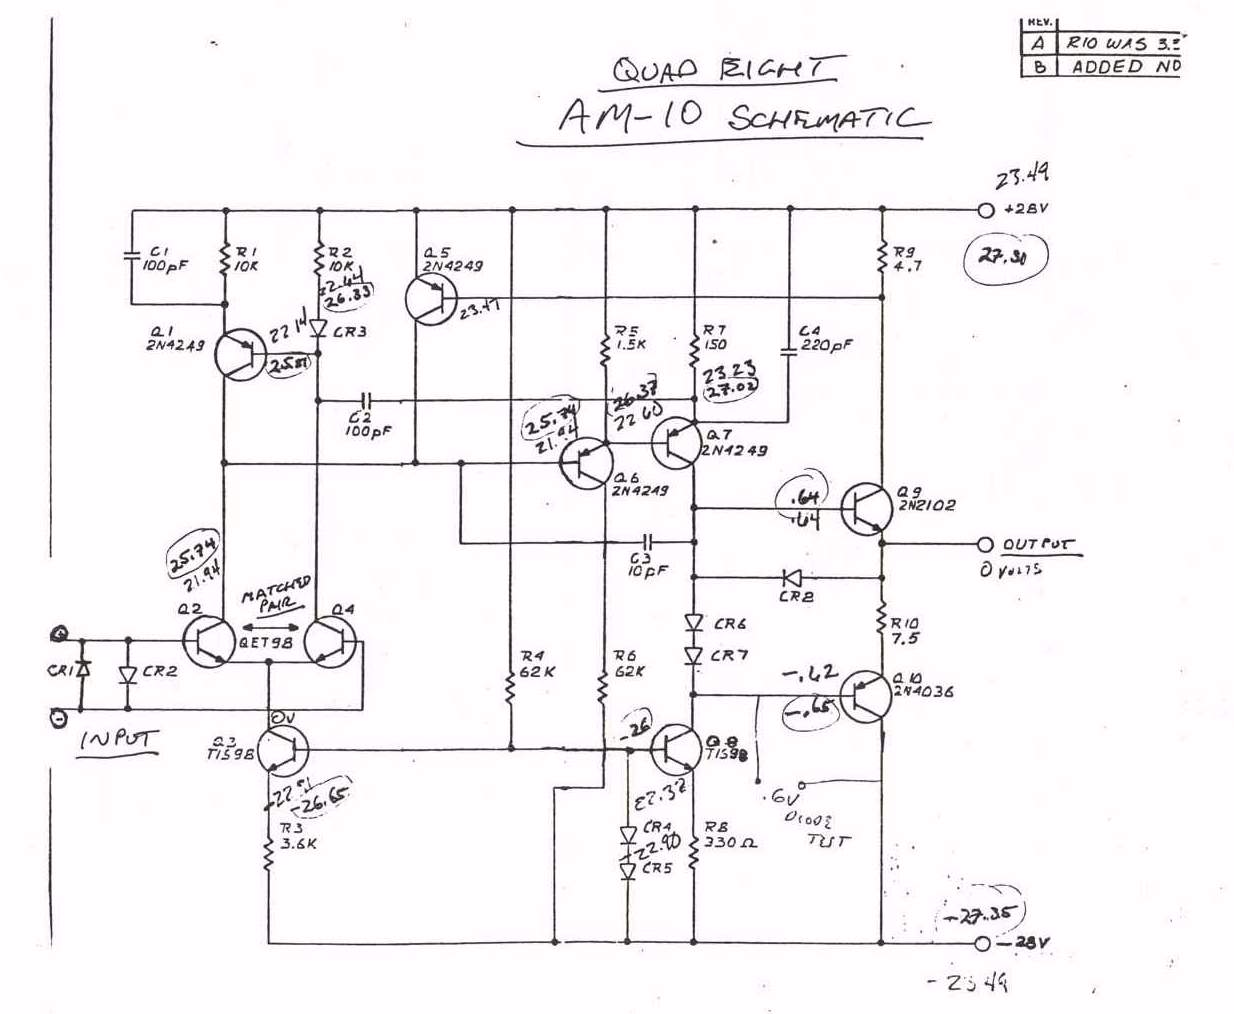 REV.
A R10 WAS 3.
B ADDED NO
QUAD EIGHT
AM-10 SCHEMATIC
23.49
+28V
27.30
C1
100pF
R1
10K
R2
10K
22.44
26.33
Q5
2N4249
23.47
R9
4.7
Q1
2N4249
22 14
25.81
CR3
R5
1.5K
R7
150
C4
220pF
23.23
27.02
C2
100pF
25.74
21.94
26.37
22 60
Q7
2N4249
Q6
2N4249
.64
.64
Q9
2N2102
OUTPUT
0 VOLTS
C3
10pF
CR8
25.74
21.94
MATCHED
PAIR
Q2
Q4
QET98
CR6
CR7
R10
7.5
+
CR1
CR2
-
INPUT
R4
62K
R6
62K
-.62
-.65
Q10
2N4036
0V
Q3
TIS98
-26
Q8
TIS98
-26.65
22.37
.6V
DIODE
TEST
R3
3.6K
CR4
22.90
CR5
R8
330Ω
-27.35
-28V
-23 49